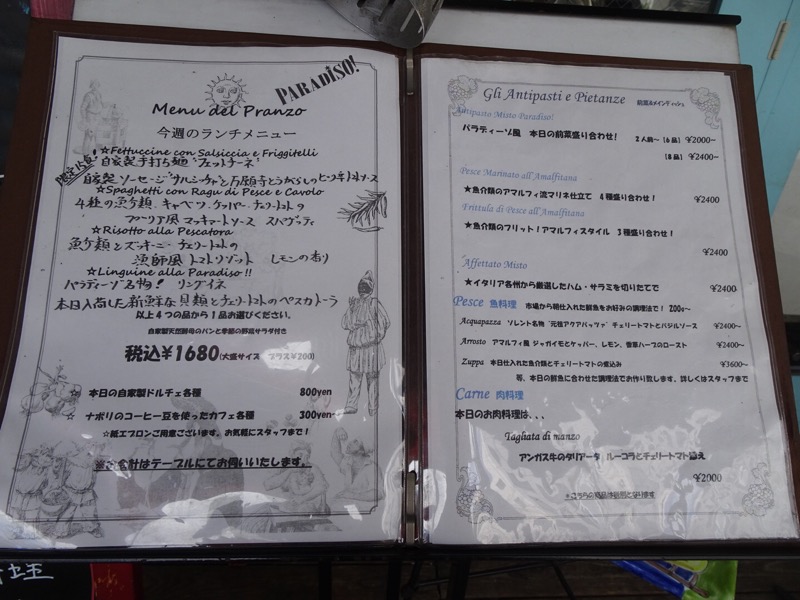 PARADISO!
Menu del Pranzo
今週のランチメニュー
☆Fettuccine con Salsiccia e Friggitelli
自家製手打ち麺 フェットチーネ
自家製ソーセージ"サルシッチャ"と万願寺とうがらしのピリ辛トマトソース
☆Spaghetti con Ragu di Pesce e Cavolo
4種の魚介類、キャベツ、ケッパー、チェリートマトの
マッキャートソース スパゲッティ
☆Risotto alla Pescatora
魚介類とズッキーニ チェリートマトの
漁師風 トマトリゾット レモンの香り
☆Linguine alla Paradiso !!
パラディーゾ名物! リングイネ
本日入荷した新鮮な貝類とチェリートマトのペスカトーラ
以上4つの品から1品お選びください。
自家製天然酵母のパンと季節の野菜サラダ付き
税込¥1680(大盛サイズ プラス¥200)
☆ 本日の自家製ドルチェ各種 800yen
☆ ナポリのコーヒー豆を使ったカフェ各種 300yen~
☆紙エプロンご用意ございます。お気軽にスタッフまで!
※お会計はテーブルにてお伺いいたします。
Gli Antipasti e Pietanze 前菜&メインディッシュ
Antipasto Misto Paradiso!
パラディーゾ風 本日の前菜盛り合わせ! 2人前~ [6品] ¥2000~
[8品] ¥2400~
Pesce Marinato all'Amalfitana
★魚介類のアマルフィ流マリネ仕立て 4種盛り合わせ! ¥2400
Frittula di Pesce all'Amalfitana
★魚介類のフリット!アマルフィスタイル 3種盛り合わせ!
¥2400
Affettato Misto
★イタリア各州から厳選したハム・サラミを切りたてで ¥2400
Pesce 魚料理 市場から朝仕入れた鮮魚をお好みの調理法で! 200g~
Acquapazza ソレント名物 "元祖アクアパッツァ" チェリートマトとバジルソース ¥2400~
Arrosto アマルフィ風 ジャガイモとケッパー、レモン、香草ハーブのロースト ¥2400~
Zuppa 本日仕入れた魚介類とチェリートマトの煮込み ¥3600~
等、本日の鮮魚に合わせた調理法でお作り致します。詳しくはスタッフまで
Carne 肉料理
本日のお肉料理は、、、
Tagliata di manzo
アンガス牛のタリアータ ルーコラとチェリートマト添え
¥2000